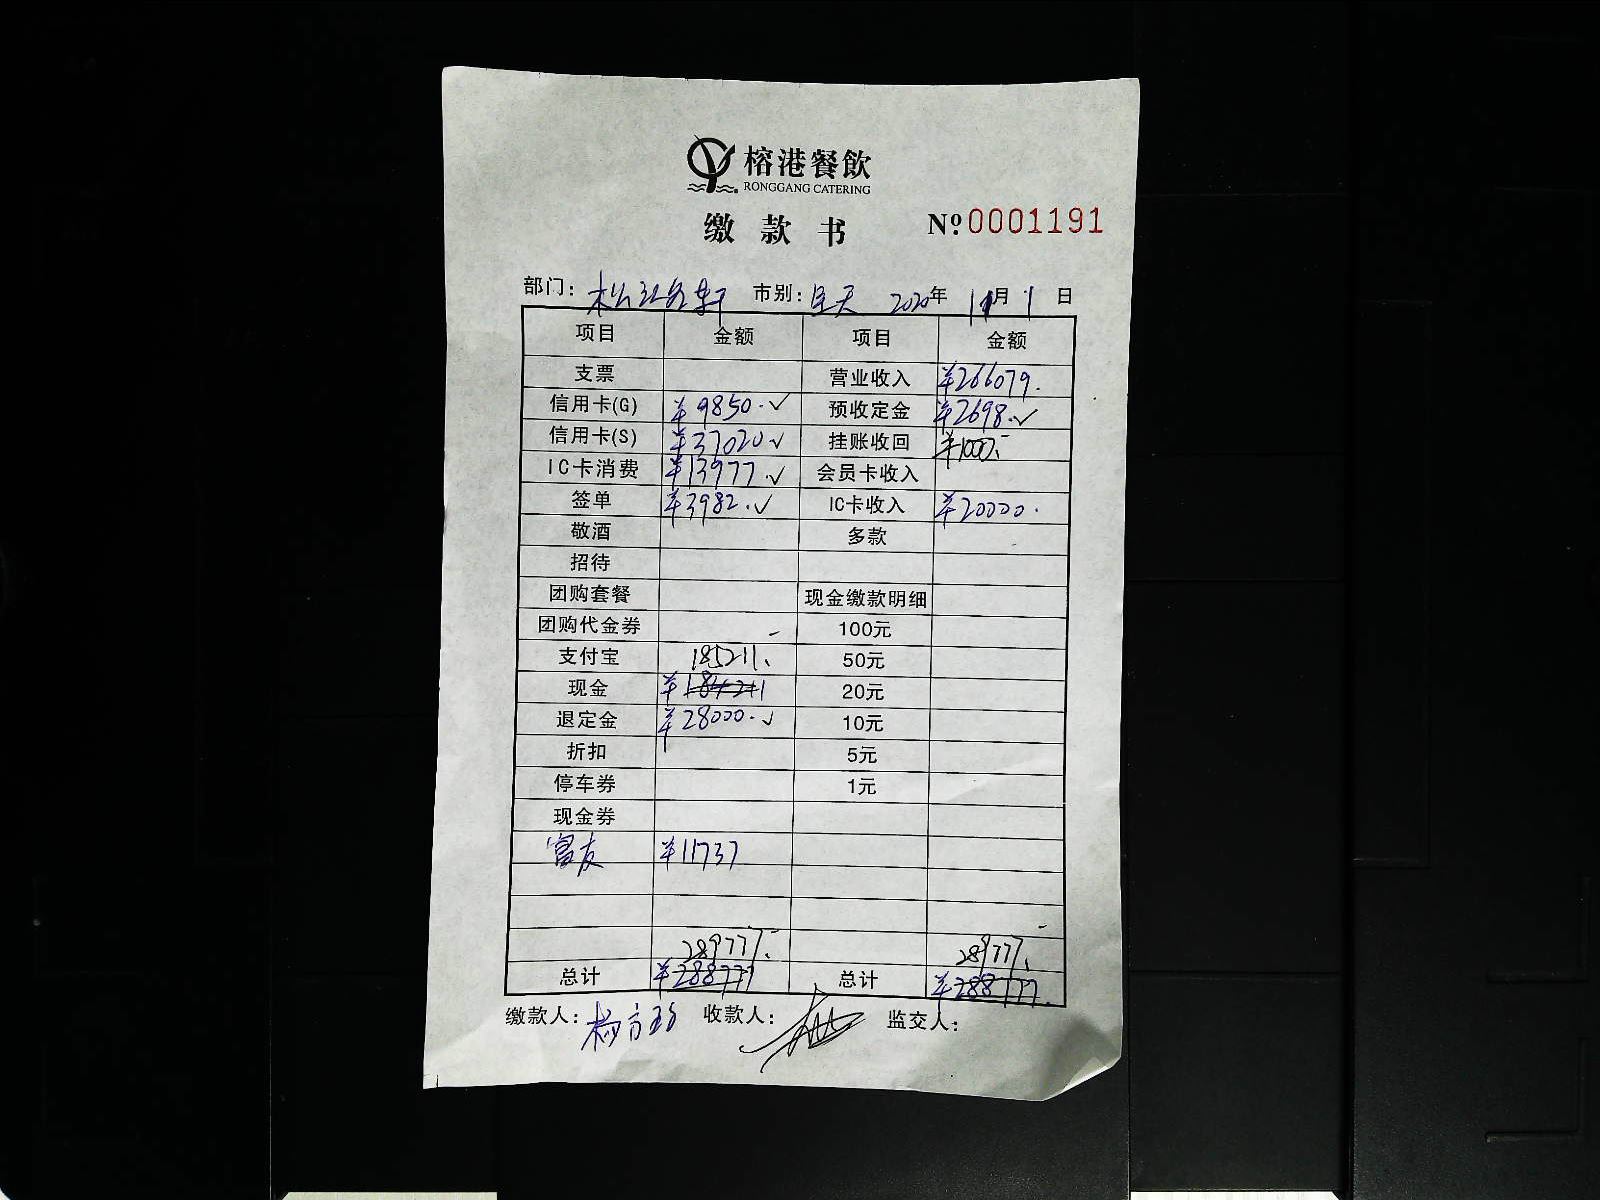 榕港餐飲
RONGGANG CATERING
缴款书 №0001191
部门: 松江名轩 市别: 全天 2020年 11月 1日
项目 金额 项目 金额
支票 营业收入 ¥266079.
信用卡(G) ¥9850.✓ 预收定金 ¥2698.✓
信用卡(S) ¥37020✓ 挂账收回 ¥1000.-
IC卡消费 ¥13977.✓ 会员卡收入
签单 ¥3982.✓ IC卡收入 ¥20000.
敬酒 多款
招待
团购套餐 现金缴款明细
团购代金券 100元
支付宝 185211. 50元
现金 ¥184211 20元
退定金 ¥28000.✓ 10元
折扣 5元
停车券 1元
现金券
富友 ¥11737
289777.- 289777.-
总计 ¥288777 总计 ¥288777.
缴款人: 收款人: 监交人: